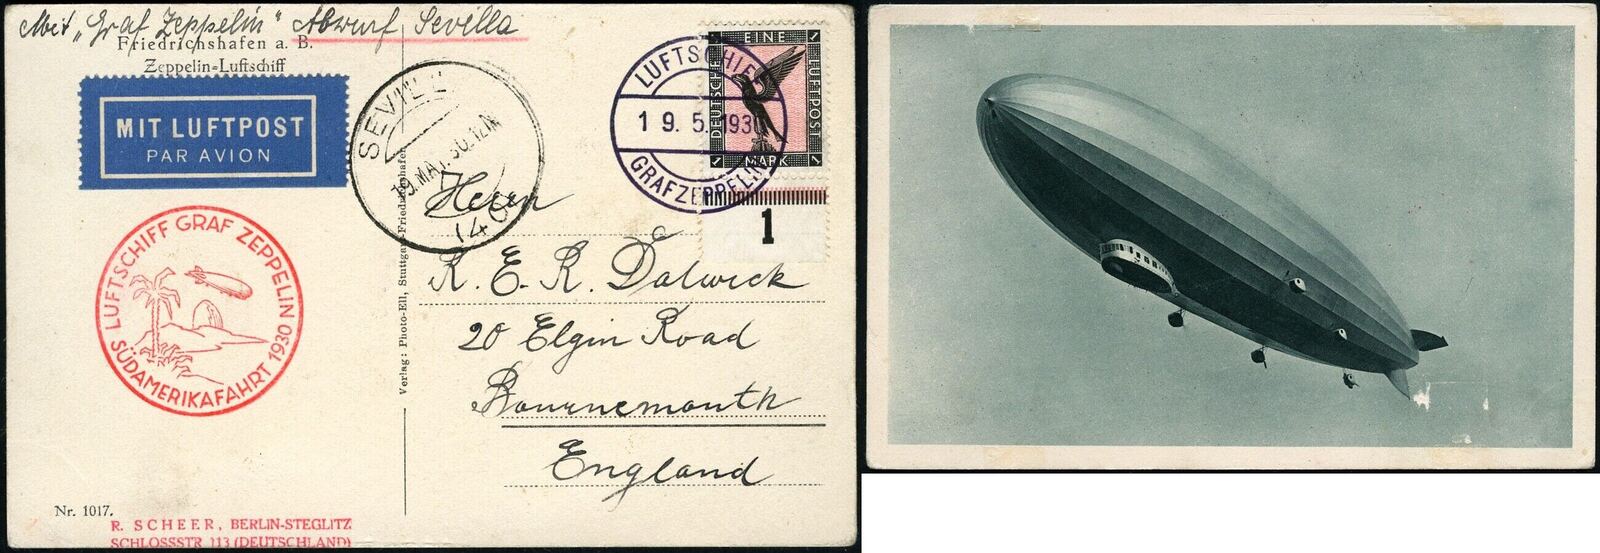 Mit "Graf Zeppelin" Abwurf Sevilla
Friedrichshafen a. B.
Zeppelin-Luftschiff
MIT LUFTPOST
PAR AVION
SEVILL
19.MAY.30.12M
(40)
LUFTSCHIFF
19.5.1930
GRAF ZEPPELIN
EINE
DEUTSCHE
LUFTPOST
1 MARK 1
1
LUFTSCHIFF GRAF ZEPPELIN
SÜDAMERIKAFAHRT 1930
Herrn
R. E. R. Dalwick
20 Elgin Road
Bournemouth
England
Verlag: Photo-Ell, Stuttgart-Friedrichshafen
Nr. 1017.
R. SCHEER, BERLIN-STEGLITZ
SCHLOSSSTR 113 (DEUTSCHLAND)